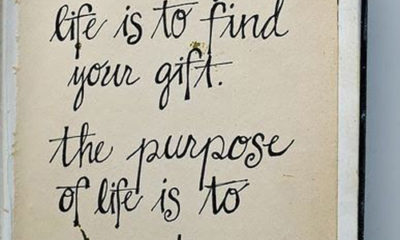 life is to find
your gift.
the purpose
of life is to